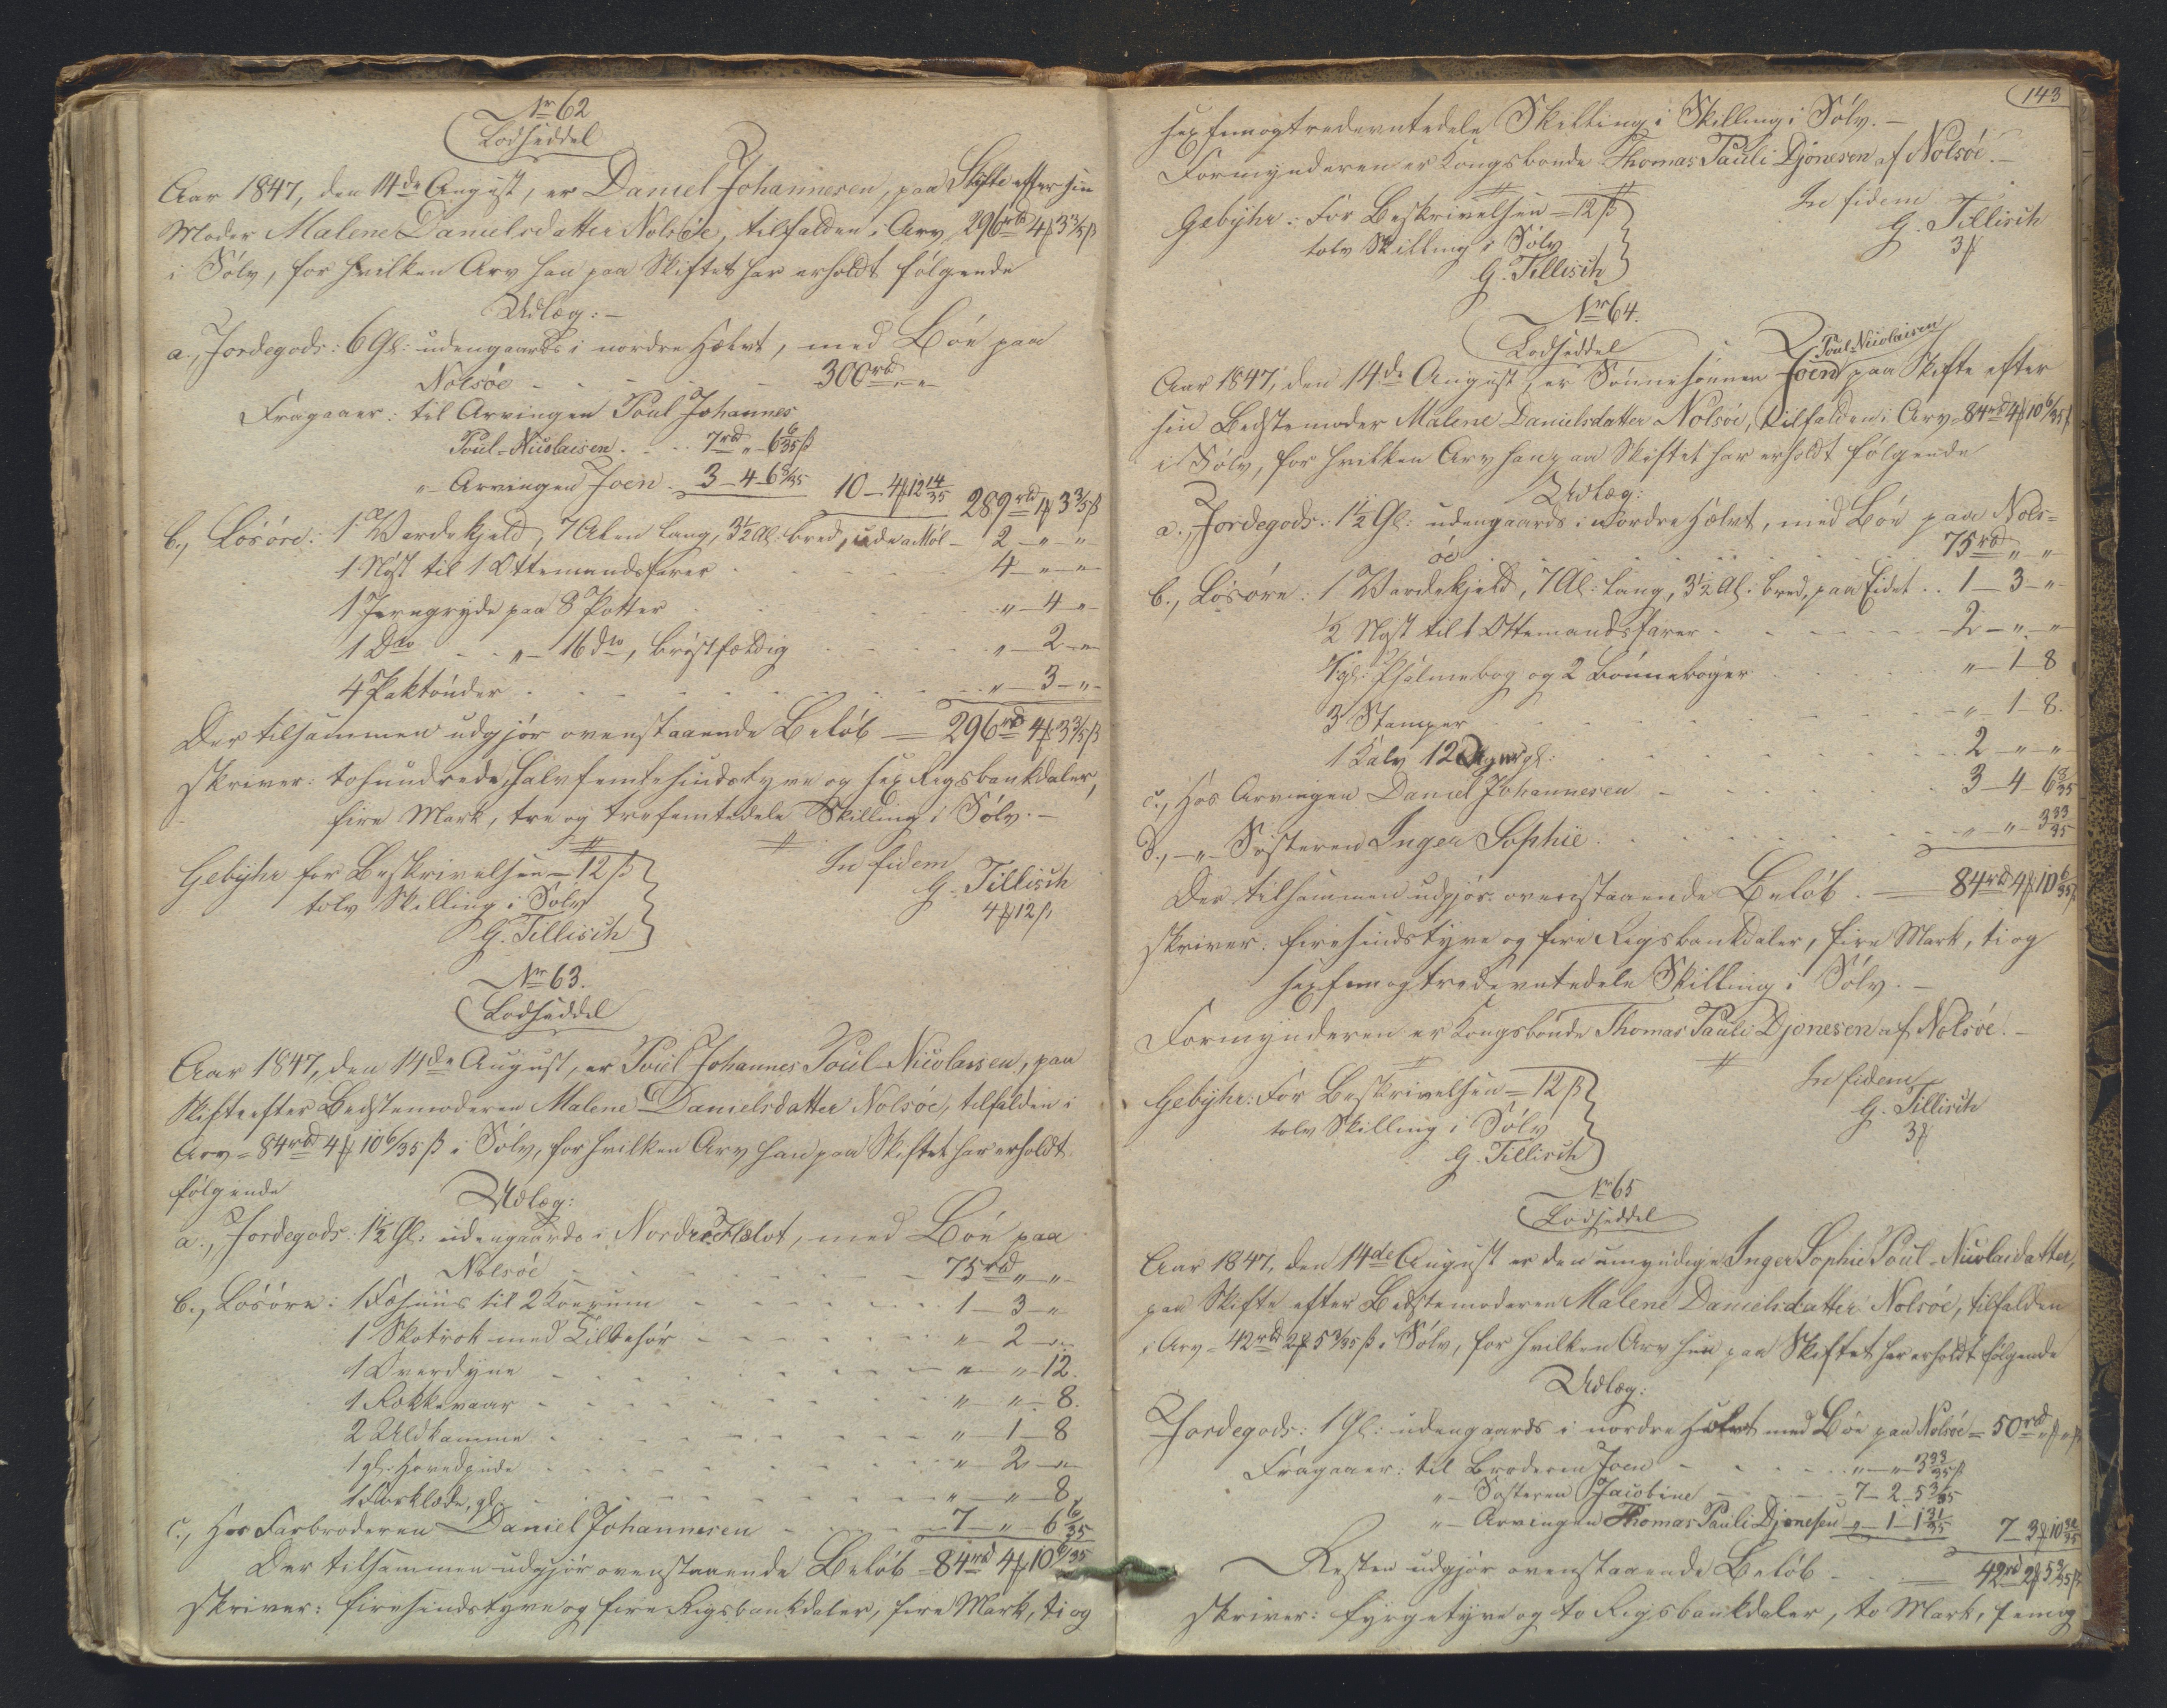 Nr 62
Lodseddel
Aar 1847, den 14de August, er Daniel Johannesen, paa Skifte efter sin
Moder Malene Danielsdatter Nolsöe, tilfalden i Arv 296rd 4 ꝟ 3 3/5 ß
i Sölv, for hvilken Arv han paa Skiftet har erholdt fölgende
Udlæg: -
a., Jordegods: 6 Gl: udengaards i nordre Hælvt, med Böe paa
Nolsöe - - - - 300rd " "
Fragaaer: til Arvingen Poul Johannes
Poul-Nicolaisen - - 7rd " 6 6/35 ß
" Arvingen Joen - 3 - 4 - 6 8/35 10 - 4 ꝟ 12 14/35 289rd 1 ꝟ 3 3/5 ß
b., Lösöre: 1 Vardekjeld, 7 Alen lang, 3 1/2 Al: bred, - 2 - " - "
1 Nöst til 1 Ottemandsfarer - - - - 4 - " - "
1 Jerngryde paa 8 Potter - - - - " - 4 - "
1 Do - - " - 16 do, bröstfældig - - - - " - 2 - "
4 Saktönder - - - - " - 3 - "
Der tilsammen udgjör ovenstaaende Belöb = 296rd 4 ꝟ 3 3/5 ß
skriver: tohundrede, halvfemtesindstyve og sex Rigsbankdaler,
fire Mark, tre og trefemtedele Skilling i Sölv. -
Gebyhr for Beskrivelsen = 12 ß
tolv Skilling i Sölv
G. Tillisch
In fidem
G. Tillisch
4 ꝟ 12 ß
Nr 63.
Lodseddel
Aar 1847, den 14de August, er Poul Johannes Poul-Nicolaisen, paa
Skifte efter Bedstemoderen Malene Danielsdatter Nolsöe, tilfalden i
Arv = 84rd 4 ꝟ 10 6/35 ß i Sölv, for hvilken Arv han paa Skiftet har erholdt
fölgende
Udlæg:
a., Jordegods: 1 1/2 Gl: udengaards i Nordre Hælvt, med Böe paa
Nolsöe - - - - 75rd " - "
b., Lösöre: 1 Fæhuus til 2 Koerum - - - - 1 - 3 - "
1 Skotrok med Tilbehör - - - - " - 2 - "
1 Overdyne - - - - " - " - 12.
1 Rokkevaar - - - - " - " - 8.
2 Uldkamme - - - - " - 1 - 8
1 gl. Hovedpude - - - - " - 2 - "
1 Forklæde, gl. - - - - " - " - 8.
c., Hos Farbroderen Daniel Johannesen - - - - 7 - " - 6 6/35
Der tilsammen udgjör ovenstaaende Belöb = 84rd 4 ꝟ 10 6/35
skriver: firesindstyve og fire Rigsbankdaler, fire Mark, ti og
143
sex femogtredevtedele Skilling i Skilling i Sölv. -
Formynderen er Kongsbonde Thomas Pauli Djonesen af Nolsöe. -
Gebyhr: For Beskrivelsen = 12 ß
tolv Skilling i Sölv
G. Tillisch
In fidem
G. Tillisch
3 ꝟ
Nr 64.
Lodseddel
Poul-Nicolaisen
Aar 1847, den 14de August, er Sönnesönnen Joen paa Skifte efter
sin Bedstemoder Malene Danielsdatter Nolsöe, tilfalden i Arv = 84rd 4 ꝟ 10 6/35 ß
i Sölv, for hvilken Arv han paa Skiftet har erholdt fölgende
Udlæg:
a., Jordegods: 1 1/2 Gl: udengaards i nordre Hælvt, med Böe paa Nols=
öe - - - - 75rd " - "
b., Lösöre: 1 Vardekjeld, 7 Al: lang, 3 1/2 Al: bred, paa Eidet - - 1 - 3 - "
1/2 Nöst til 1 Ottemandsfarer - - - - 2 - " - "
1 gl: Psalmebog og 2 Bönneböger - - " - 1 - 8
3 Stamper - - - - " - 1 - 8.
1 Kalv 12 gl: - - - - 2 - " - "
c., Hos Arvingen Daniel Johannesen - - - - 3 - 4 - 6 8/35
d., - " - Sösteren Inger Sophie - - - - " - " - 3 33/35
Der tilsammen udgjör ovenstaaende Belöb - = 84rd 4 ꝟ 10 6/35 ß
skriver: firesindstyve og fire Rigsbankdaler, fire Mark, ti og
sex femogtredevtedele Skilling i Sölv. -
Formynderen er Kongsbonde Thomas Pauli Djonesen af Nolsöe. -
Gebyhr: For Beskrivelsen = 12 ß
tolv Skilling i Sölv
G. Tillisch
In fidem
G. Tillisch
3 ꝟ
Nr 65
Lodseddel
Aar 1847, den 14de August er den umyndige Inger Sophie Poul-Nicolaidatter,
paa Skifte efter Bedstemoderen Malene Danielsdatter Nolsöe, tilfalden
i Arv = 42rd 2 ꝟ 5 3/35 ß i Sölv, for hvilken Arv hun paa Skiftet har erholdt fölgende
Udlæg:
Jordegods: 1 Gl: udengaards i nordre Hælvt med Böe paa Nolsöe = 50rd " ꝟ " ß
Fragaaer: til Broderen Joen - - - - " - " - 3 33/35 ß
" - Sösteren Jacobine - - - - 7 - 2 - 5 3/35
" - Arvingen Thomas Pauli Djonesen " - 1 - 1 31/35 7 - 3 ꝟ 10 32/35
Resten udgjör ovenstaaende Belöb - - = 42rd 2 ꝟ 5 3/35 ß
skriver: fyrgetyve og to Rigsbankdaler, to Mark, fem og